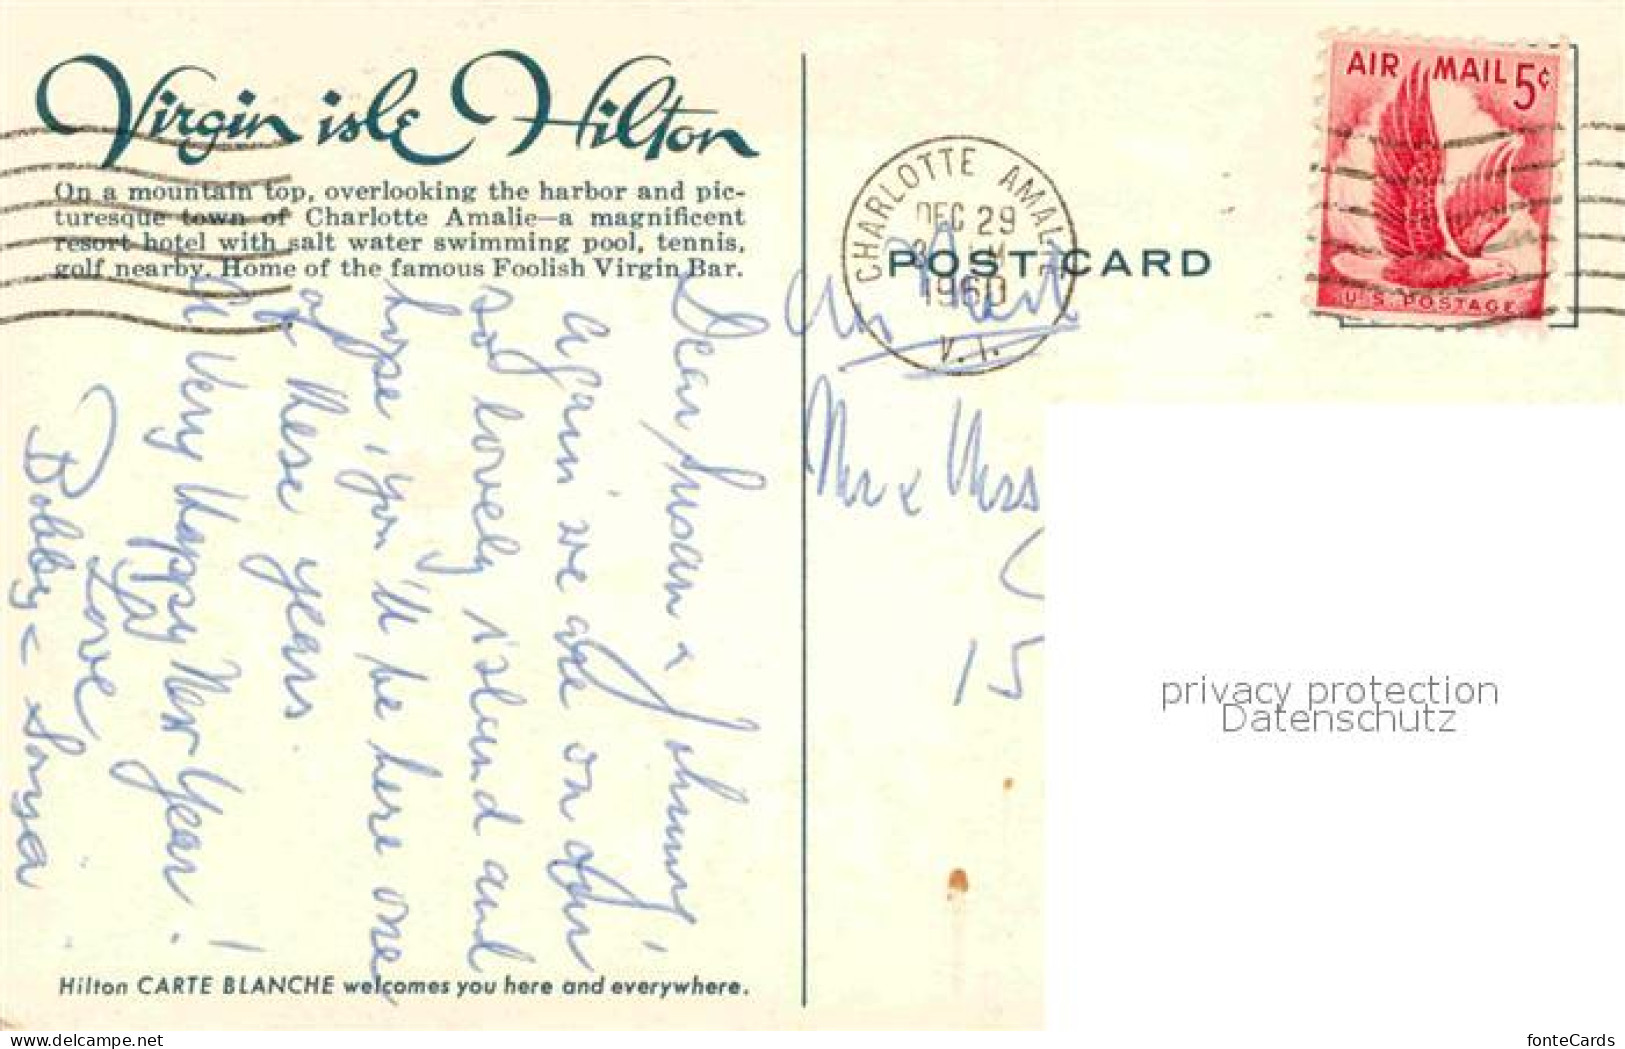 Virgin isle Hilton
On a mountain top, overlooking the harbor and pic-
turesque town of Charlotte Amalie—a magnificent
resort hotel with salt water swimming pool, tennis,
golf nearby. Home of the famous Foolish Virgin Bar.
Dear Susan & Johnny
Again we are on our
lovely island and
hope, you'll be here one
of these years.
A Very Happy New Year!
Love
Bobby & Sonja
Hilton CARTE BLANCHE welcomes you here and everywhere.
POST CARD
CHARLOTTE AMALIE
DEC 29
1960
V. I.
AIR MAIL 5¢
U.S. POSTAGE
Mr & Mrs
15
privacy protection
Datenschutz
www.delcampe.net
fonteCards